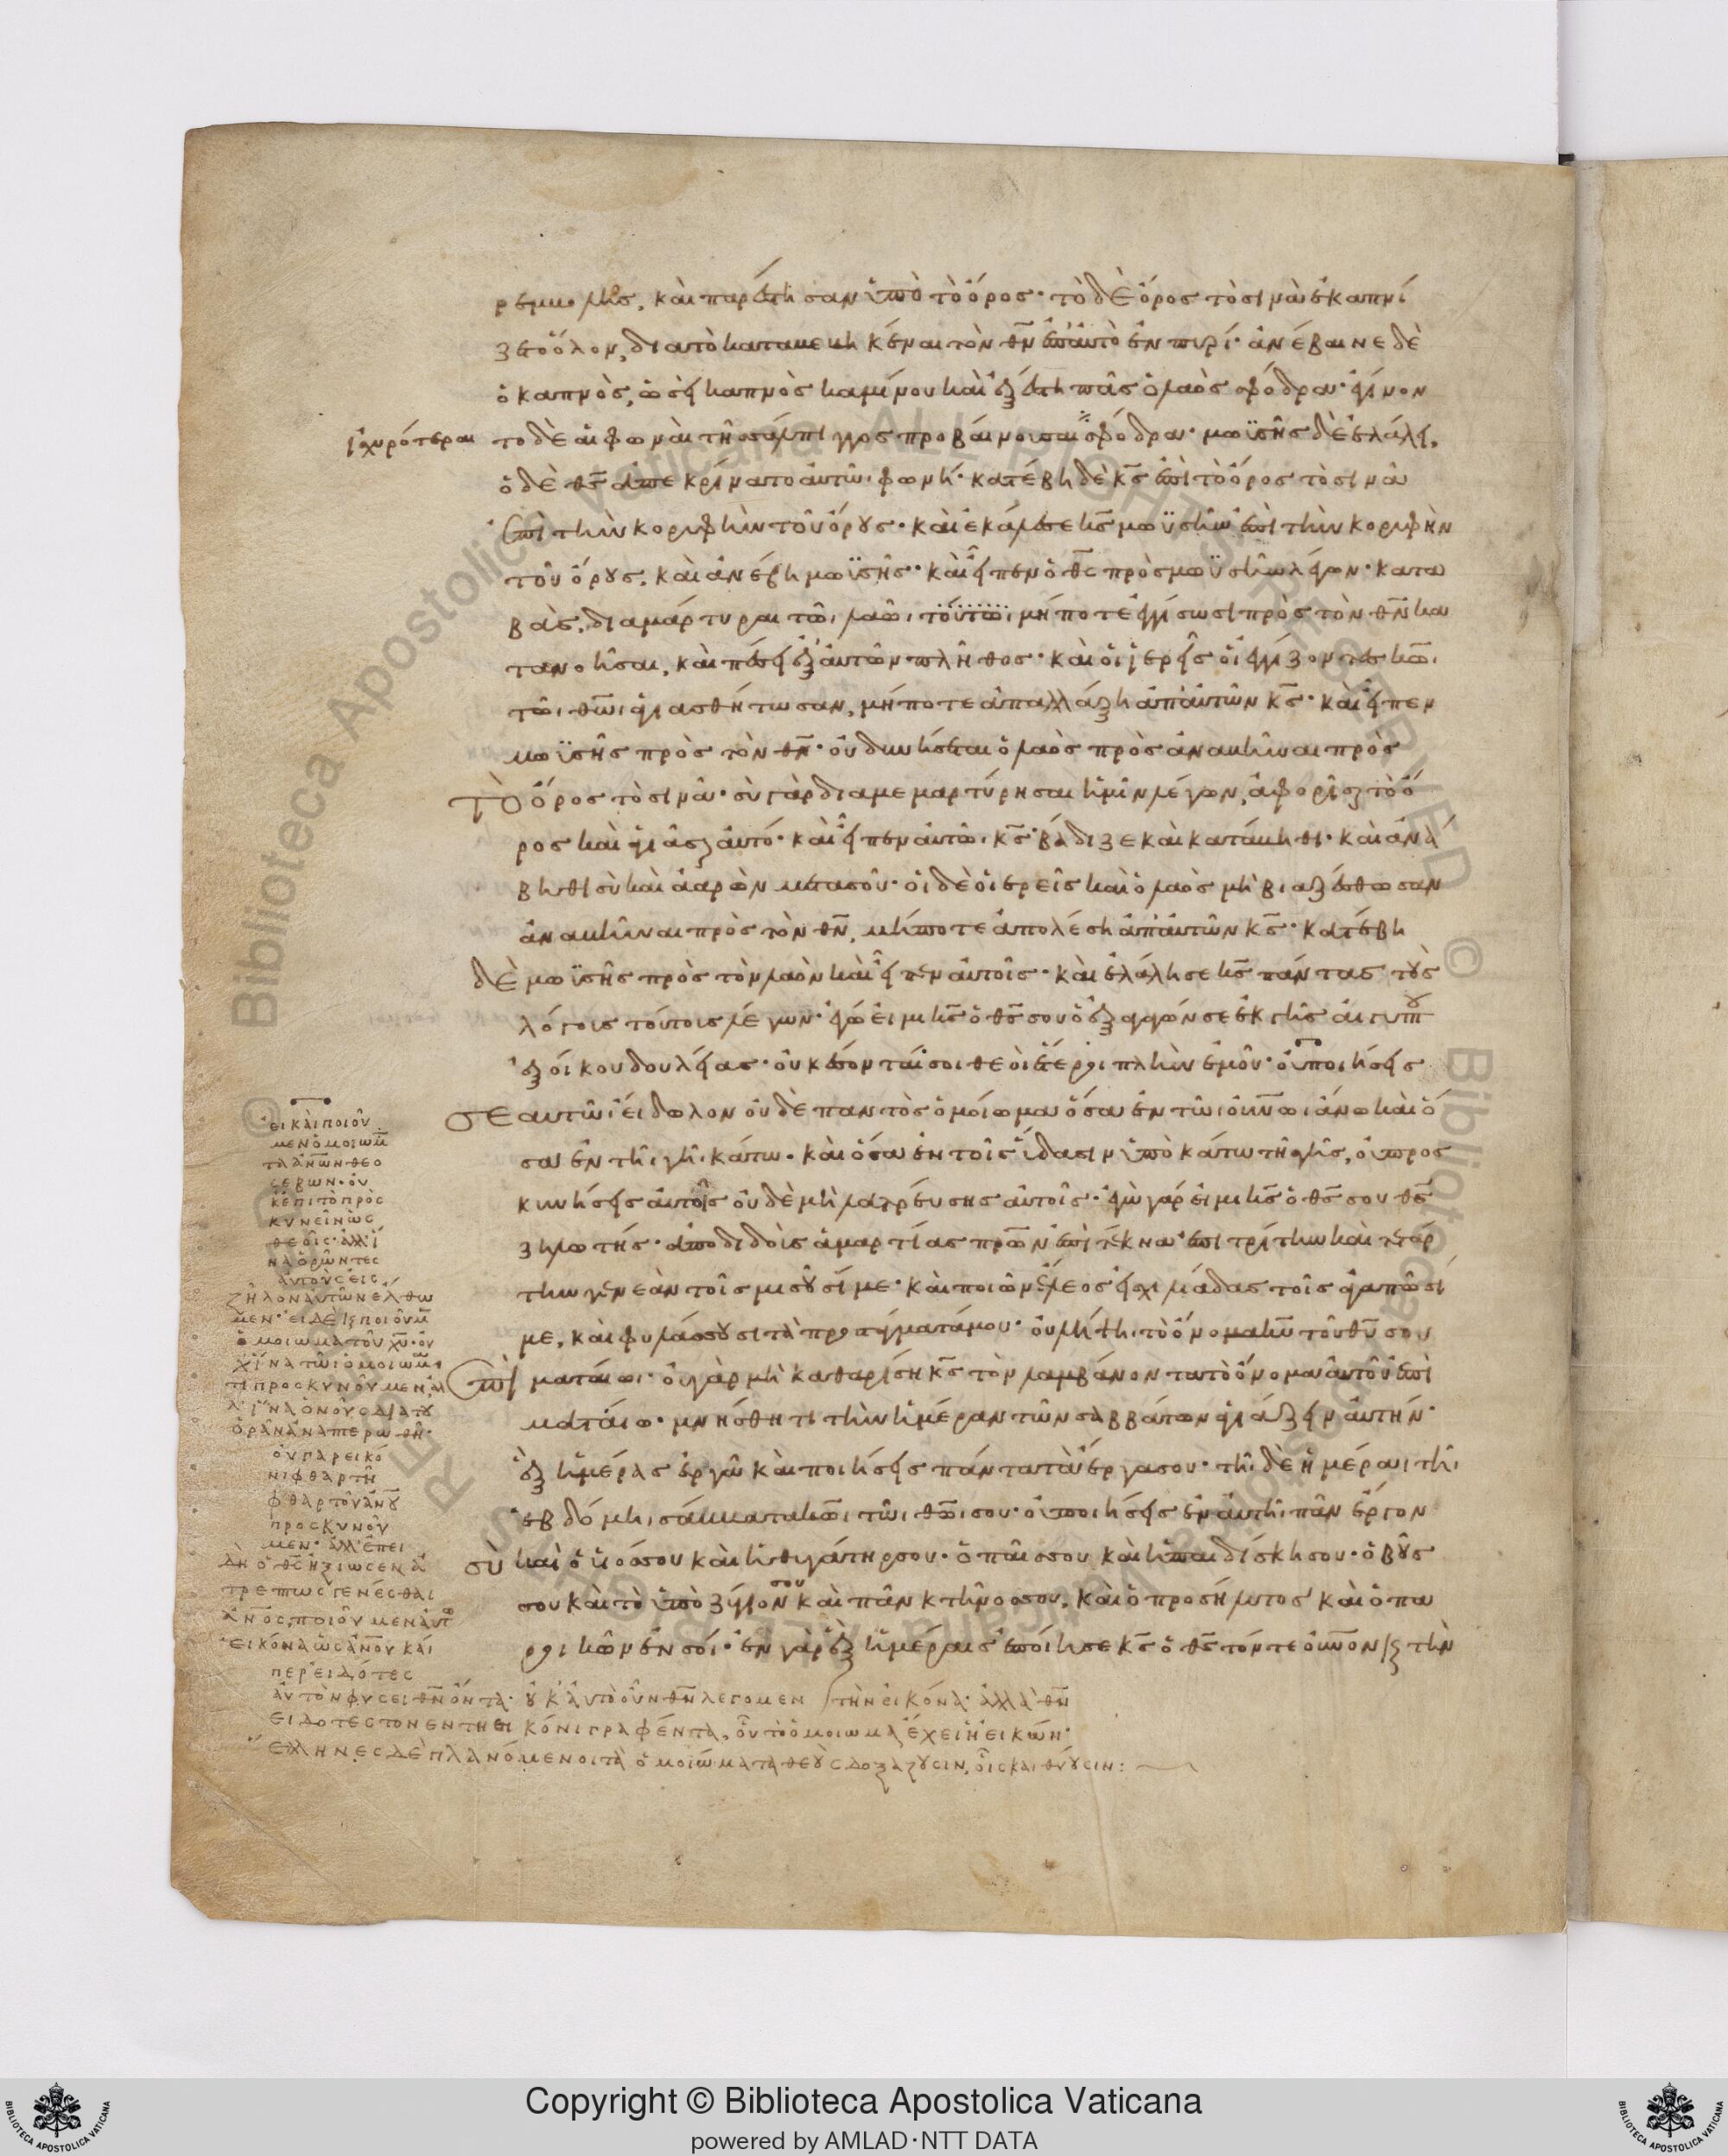 ρεμβολῆς, καὶ παρέστησαν ὑπὸ τὸ ὄρος· τὸ δὲ ὄρος τὸ σινὰ ἐκαπνί
ζετο ὅλον, διατὸ καταβεβηκέναι τὸν θν̅ ἐπ' αὐτὸ ἐν πυρί· ἀνέβαινε δὲ
ὁ καπνὸς, ὡσεὶ καπνὸς καμίνου καὶ ἐξέστη πᾶς ὁ λαὸς σφόδρα· ἐγίνον
ἰσχυρότεραι
το δὲ αἱ φωναὶ τῆς σάλπιγγος προβαίνουσαι σφόδρα· μωϋσῆς δὲ ἐλάλει,
ὁ δὲ θς̅ ἀπεκρίνατο αὐτῶι φωνῆ· κατέβη δὲ κς̅ ἐπὶ τὸ ὄρος τὸ σινὰ
ἐπὶ τὴν κορυφὴν τοῦ ὄρους· καὶ ἐκάλεσε κς̅ μωϋσῆν ἐπὶ τὴν κορυφὴν
τοῦ ὄρους. καὶ ἀνέβη μωϋσῆς· καὶ εἶπεν ὁ θς̅ πρὸς μωϋσῆν λέγων· κατα
βὰς, διαμάρτυραι τῶι λαῶι τούτωι μήποτε ἐγγίσωσι πρὸς τὸν θν̅ κα
τανοῆσαι, καὶ πέσει ἐξ αὐτῶν πλῆθος· καὶ οἱ ἱερεῖς οἱ ἐγγίζοντες κω̅ι
τῶι θω̅ι ἁγιασθήτωσαν, μήποτε ἀπαλλάξη ἀπ' αὐτῶν κς̅· καὶ εἶπεν
μωϋσῆς πρὸς τὸν θν̅· οὐ δυνήσεται ὁ λαὸς πρὸς ἀναβῆναι πρὸς
τὸ ὄρος τὸ σινά· σὺ γὰρ διαμεμαρτύρησαι ἡμῖν λέγων, ἀφόρισαι τὸ ὄ
ρος καὶ ἁγίασαι αὐτό· καὶ εἶπεν αὐτῶι κς̅· βάδιζε καὶ κατάβηθι· καὶ ἀνά
βηθι σὺ καὶ ἀαρὼν μετὰ σοῦ· οἱ δὲ ἱερεῖς καὶ ὁ λαὸς μὴ βιαζέσθωσαν
ἀναβῆναι πρὸς τὸν θν̅, μήποτε ἀπολέση ἀπ' αὐτῶν κς̅· κατέβη
δὲ μωϋσῆς πρὸς τὸν λαὸν καὶ εἶπεν αὐτοῖς· καὶ ἐλάλησε κς̅ πάντας τοὺς
λόγους τούτους λέγων· ἐγώ εἰμι κς̅ ὁ θς̅ σου ὁ ἐξαγαγών σε ἐκ γῆς αἰγύπτου
ἐξ οἴκου δουλείας· οὐκ ἔσονταί σοι θεοὶ ἕτεροι πλὴν ἐμοῦ· οὐ ποιήσεις
σεαυτῶι εἴδωλον οὐδὲ παντὸς ὁμοίωμα ὅσα ἐν τῶι οὐνω̅ι ἄνω καὶ ὅ
σα ἐν τῆι γῆι κάτω· καὶ ὅσα ἐν τοῖς ὕδασιν ὑποκάτω τῆς γῆς, οὐ προς
κυνήσεις αὐτοῖς οὐδὲ μὴ λατρεύσης αὐτοῖς· ἐγὼ γάρ εἰμι κς̅ ὁ θς̅ σου θς̅
ζηλωτής· ἀποδιδοὺς ἁμαρτίας πρω̅ν ἐπὶ τέκνα· ἐπι τρίτην καὶ τετάρ
την γενεὰν τοῖς μισοῦσί με· καὶ ποιῶν ἔλεος εἰς χιλιάδας τοῖς ἀγαπῶσί
με, καὶ φυλάσσουσι τὰ προστάγματά μου· οὐ λήψηι τὸ ὄνομα κυ̅ τοῦ θυ̅ σου
ἐπὶ ματαίωι· οὐ γὰρ μὴ καθαρίση κς̅ τὸν λαμβάνοντα τὸ ὄνομα αὐτοῦ ἐπὶ
ματαίω· μνήσθητι τὴν ἡμέραν τῶν σαββάτων ἁγιάζειν αὐτήν·
ἓξ ἡμέρας ἐργᾶ καὶ ποιήσεις πάντα τὰ ἔργα σου· τῆι δὲ ἡμέραι τῆι
ἑβδόμηι σάββατα κω̅ι τῶι θω̅ι σου· οὐ ποιήσεις ἐν αὐτῆι πᾶν ἔργον
σὺ καὶ ὁ υἱός σου καὶ ἡ θυγάτηρ σου· ὁ παῖς σου καὶ ἡ παιδίσκη σου· ὁ βοῦς
σου καὶ τὸ ὑποζύγιόν σου καὶ πᾶν κτῆνος σου, καὶ ὁ προσήλυτος καὶ ὁ πα
ροικῶν ἐν σοί· ἐν γὰρ ἓξ ἡμέραις ἐποίησε κς̅ ὁ θς̅ τόν τε οὐνο̅ν κ τὴν
εἰ καὶ ποιοῦ
μεν ὁμοιωμ
τα ἀνω̅ν θεο
σεβων· οὐ
κ ἐπὶ τὸ πρὸς
κυνεῖν ὡς
θεοῖς· ἀλλ' ἵ
να ὁρῶντες
αὐτοὺς εἰς
ζῆλον αὐτῶν ἔλθω
μεν· εἰ δὲ κ ποιοῦμ
ὁμοιωμα τοῦ χυ̅· οὐ
χ ἵνα τῶι ὁμοιωμα
τι προσκυνοῦμεν, ἀλ
λ' ἵνα ὁ νοῦς διὰ του
ὁρᾶν ἀναπερωθῆ·
οὐ γὰρ εἰκό
νι φθαρτῆ
φθαρτοῦ ἀνου̅
προσκυνοῦ
μεν· ἀλλ' ἐπει
δὴ ὁ θς̅ ἠξίωσεν ἀ
τρέπτως γενέσθαι
ἄνος̅, ποιοῦμεν αὐτοῦ
εἰκόνα ὡς ἀνου̅ καί
περ εἰδότες
αὐτὸν φύσει θν̅ ὄντα· οὐκ αὐτὸ οὖν θν̅ λεγομεν τὴν εἰκόνα· ἀλλὰ θν̅
εἰδοτες τον ἐν τῆ εἰκόνι γραφέντα, οὗ τὸ ὁμοιωμα ἔχει ἡ εἰκών·
ἕλληνες δὲ πλανόμενοι τὰ ὁμοιώματα θεοὺς δοξάζουσιν, οἷς και θύουσιν:
Copyright © Biblioteca Apostolica Vaticana
powered by AMLAD·NTT DATA